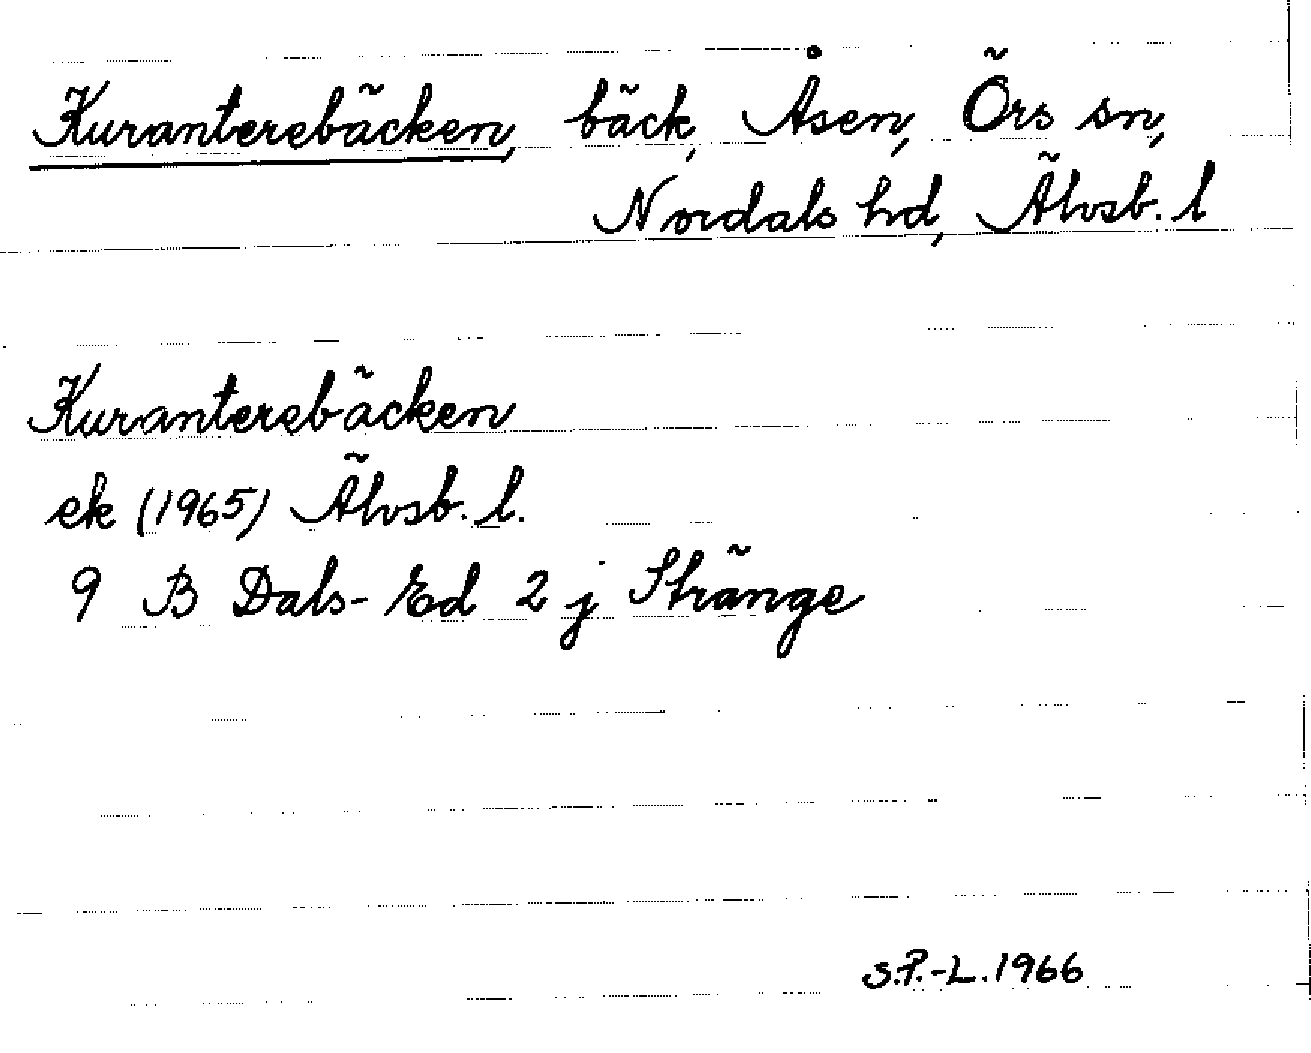 Kuranterebäcken, bäck, Åsen, Örs sn,
Nordals hd, Älvsb. l
Kuranterebäcken
ek (1965) Älvsb. l.
9 B Dals-Ed 2 j Stränge
S.P.-L. 1966